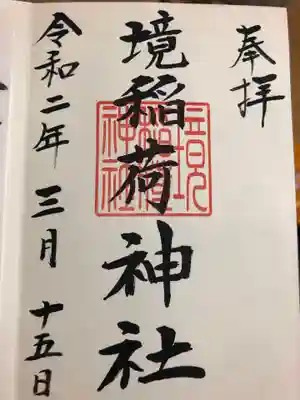 奉拝
境稲荷神社
令和二年三月十五日
境稲荷神社